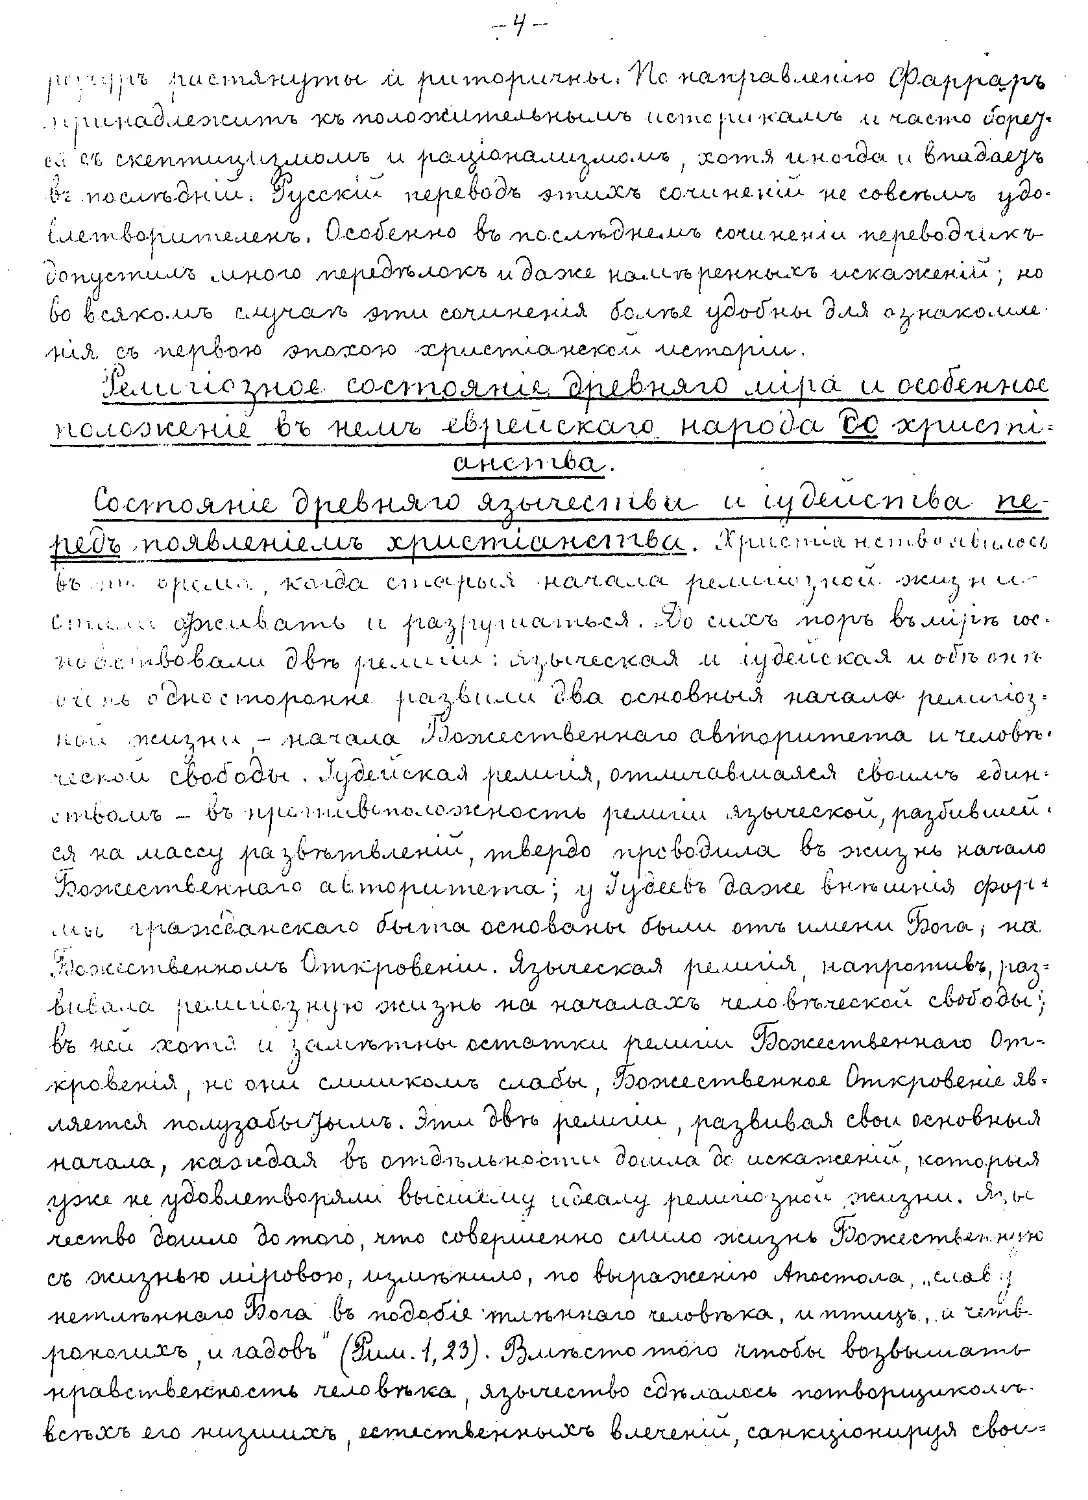 - 4 -
растянуты и риторичны. По направленію Фарраръ
принадлежитъ къ положительнымъ историкамъ и часто борет-
ся съ скептицизмомъ и раціонализмомъ, хотя иногда и впадаетъ
въ послѣдній. Русскій переводъ этихъ сочиненій не совсѣмъ удо-
влетворителенъ. Особенно въ послѣднемъ сочиненіи переводчикъ
допустилъ много передѣлокъ и даже намѣренныхъ искаженій; но
во всякомъ случаѣ эти сочиненія болѣе удобны для ознакомле-
нія съ первою эпохою христіанской исторіи.
Религіозное состояніе древняго міра и особенное
положеніе въ немъ еврейскаго народа до христі-
анства.
Состояніе древняго язычества и іудейства пе-
редъ появленіемъ христіанства. Христіанство явилось
въ то время, когда старыя начала религіозной жизни
стали отживать и разрушаться. До сихъ поръ въ мірѣ гос-
подствовали двѣ религіи: языческая и іудейская и обѣ онѣ
очень односторонне развили два основныя начала религіоз-
ной жизни, - начала Божественнаго авторитета и человѣ-
ческой свободы. Іудейская религія, отличавшаяся своимъ един-
ствомъ - въ противоположность религіи языческой, разбившей-
ся на массу развѣтвленій, твердо проводила въ жизнь начало
Божественнаго авторитета; у Іудеевъ даже внѣшнія фор-
мы гражданскаго быта основаны были отъ имени Бога, на
Божественномъ Откровеніи. Языческая религія, напротивъ, раз-
вивала религіозную жизнь на началахъ человѣческой свободы;
въ ней хотя и замѣтны остатки религіи Божественнаго От-
кровенія, но они слишкомъ слабы, Божественное Откровеніе яв-
ляется полузабытымъ. Эти двѣ религіи, развивая свои основныя
начала, каждая въ отдѣльности дошла до искаженій, которыя
уже не удовлетворяли высшему идеалу религіозной жизни. Язы
чество дошло до того, что совершенно слило жизнь Божественную
съ жизнью міровою, измѣнило, по выраженію Апостола, „славу
нетлѣннаго Бога въ подобіе тлѣннаго человѣка, и птицъ, и четв-
роногихъ, и гадовъ" (Рим. 1, 23). Вмѣсто того чтобы возвышать
нравственность человѣка, язычество сдѣлалось потворщикомъ
всѣхъ его низшихъ, естественныхъ влеченій, санкціонируя свои-